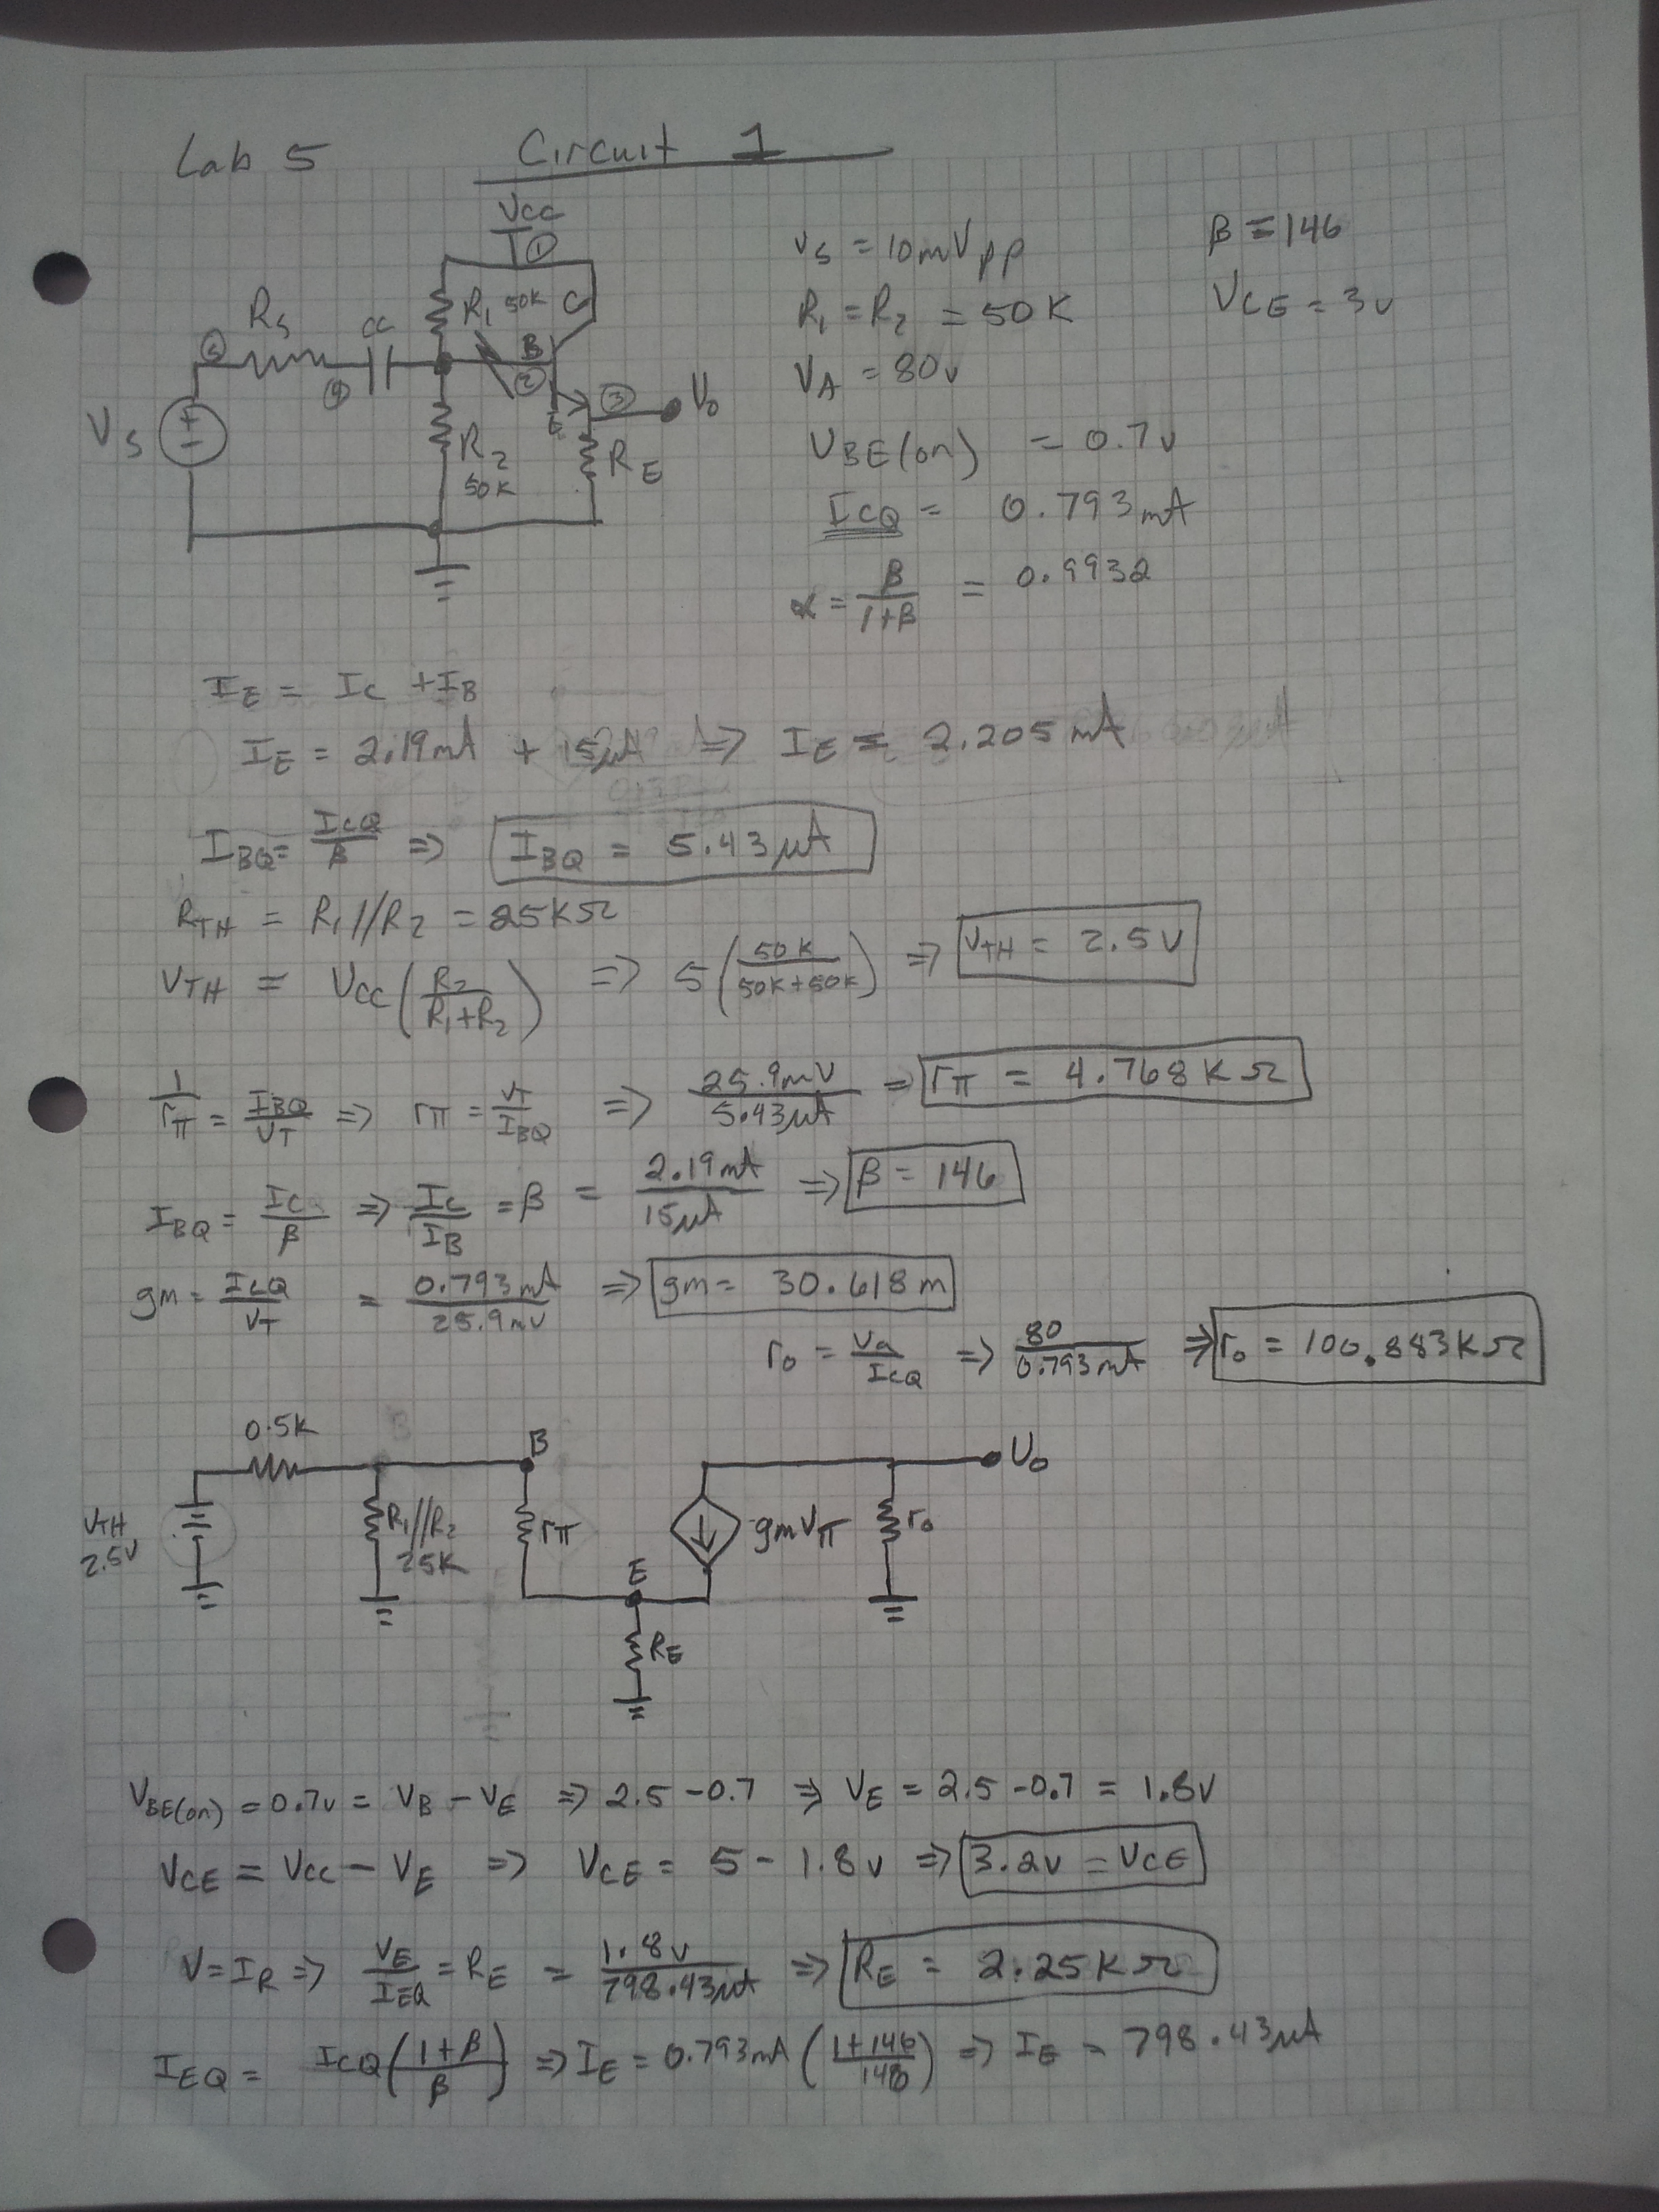 Lab 5 Circuit 1
VCC
①
R1 50K C
RS CC
B
②
③ Vo
④
VS
R2
50K
E
RE
vs = 10mVpp
β = 146
R1 = R2 = 50K
VCE = 3v
VA = 80v
VBE(on) = 0.7v
ICQ = 0.793mA
α = β/(1+β) = 0.9932
IE = IC + IB
IE = 2.19mA + 15μA => IE = 2.205mA
IBQ = ICQ/β => IBQ = 5.43μA
RTH = R1//R2 = 25KΩ
VTH = VCC(R2/(R1+R2)) => 5(50K/(50K+50K)) => VTH = 2.5V
1/rπ = IBQ/VT => rπ = VT/IBQ => 25.9mV/5.43μA => rπ = 4.768KΩ
IBQ = IC/β => IC/IB = β = 2.19mA/15μA => β = 146
gm = ICQ/VT = 0.793mA/25.9mV => gm = 30.618m
ro = Va/ICQ => 80/0.793mA => ro = 100.883KΩ
0.5K
B
Vo
VTH
2.5V
R1//R2
25K
rπ
gmVπ
ro
E
RE
VBE(on) = 0.7v = VB - VE => 2.5 - 0.7 => VE = 2.5 - 0.7 = 1.8V
VCE = VCC - VE => VCE = 5 - 1.8v => 3.2v = VCE
V=IR => VE/IEQ = RE = 1.8v/798.43μA => RE = 2.25KΩ
IEQ = ICQ((1+β)/β) => IE = 0.793mA((1+146)/146) => IE = 798.43μA